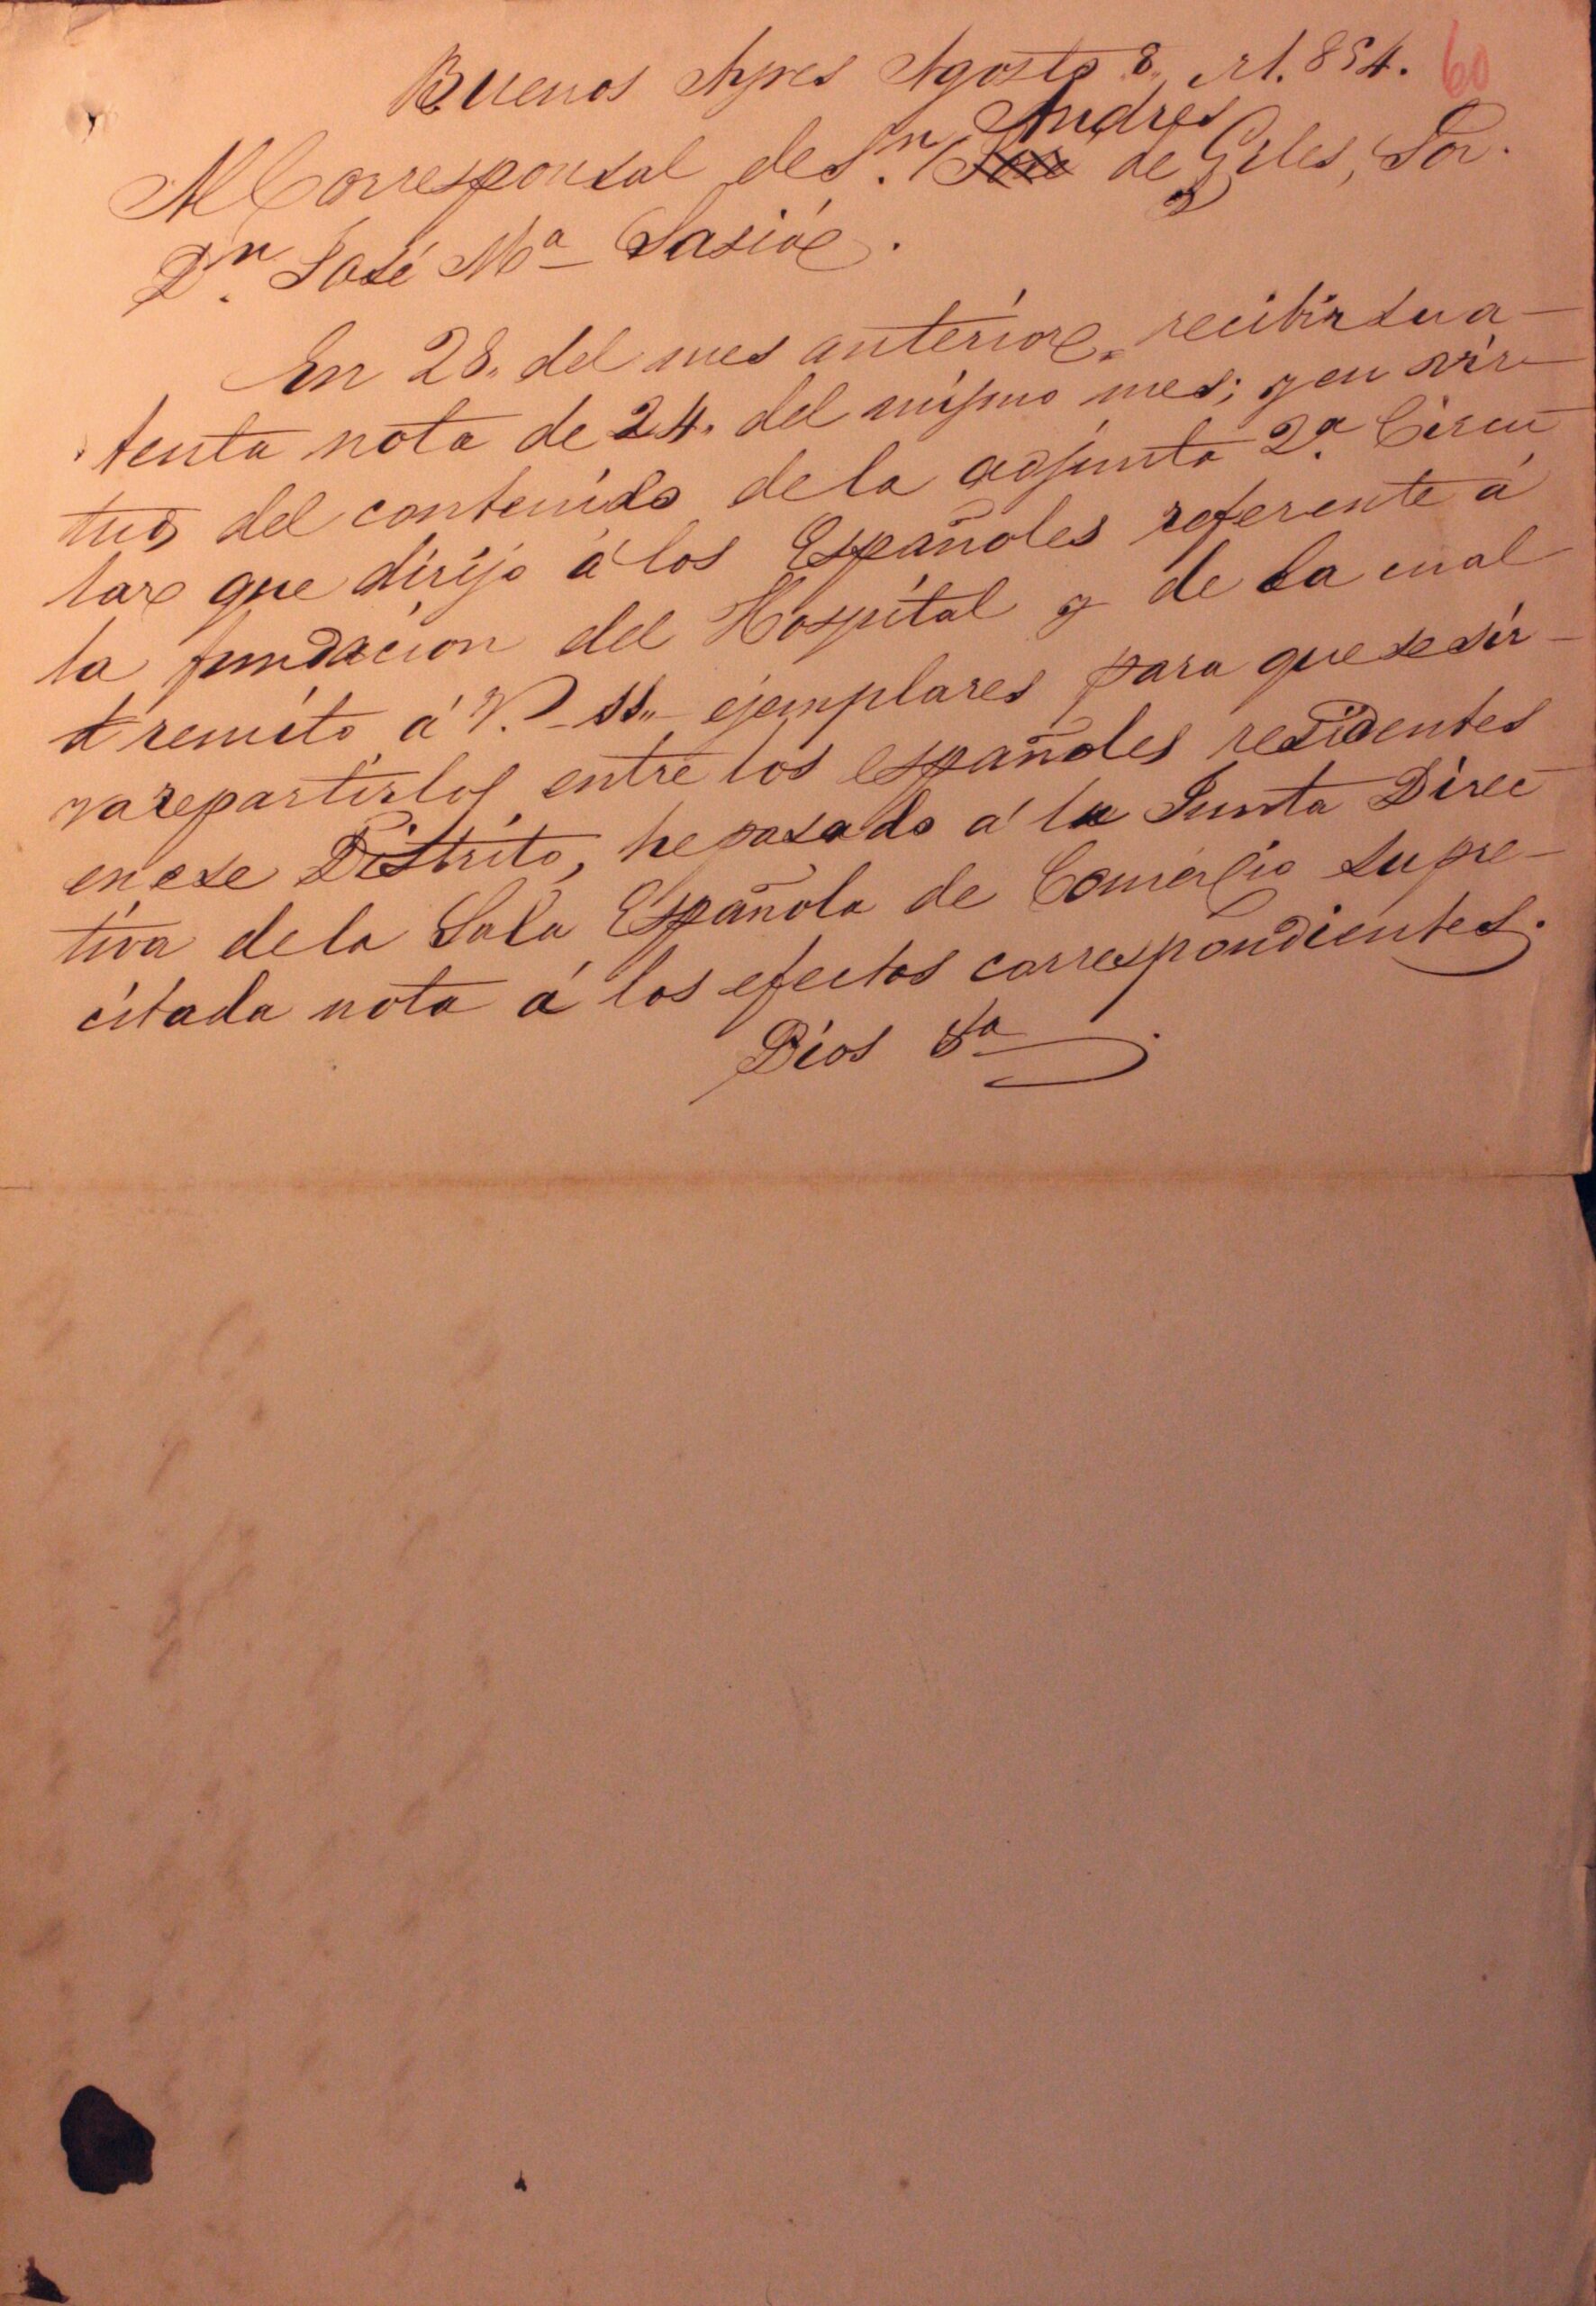 Buenos Ayres Agosto 8,, 1.854. 60
Andres
Al Corresponsal de Sn. de Giles, Sor.
Dn. José Ma
En 28,, del mes anterior recibi su a-
tenta nota de 24,, del mismo mes; y en vir-
tud del contenido de la adjunta 2a. Circu
lar que dirijo á los Españoles referente á
la fundacion del Hospital y de la cual
remito á V. ejemplares para que se sir-
va repartirlos entre los españoles residentes
en ese Distrito, he pasado á la Junta Direc
tiva de la Sala Española de Comercio su pre-
citada nota á los efectos correspondientes.
Dios &a